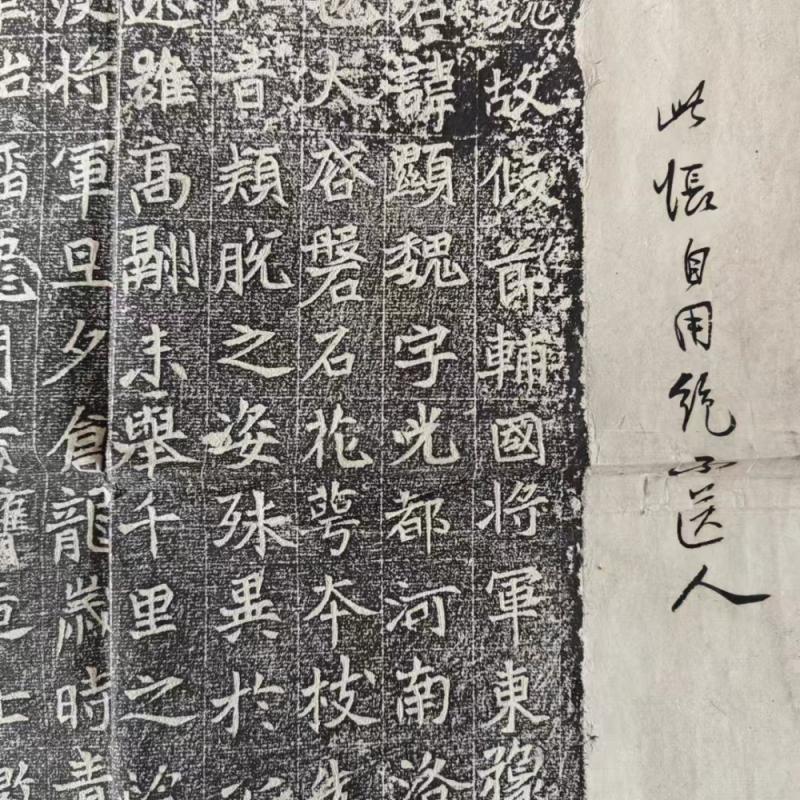 此帳自用絶不送人
魏故假節輔國将軍東豫
君諱顯魏字光都河南洛
也大啓磐石花萼夲枝
音穎脱之姿殊異於
雖高翮未舉千里之
将軍旦夕倉龍歲時青